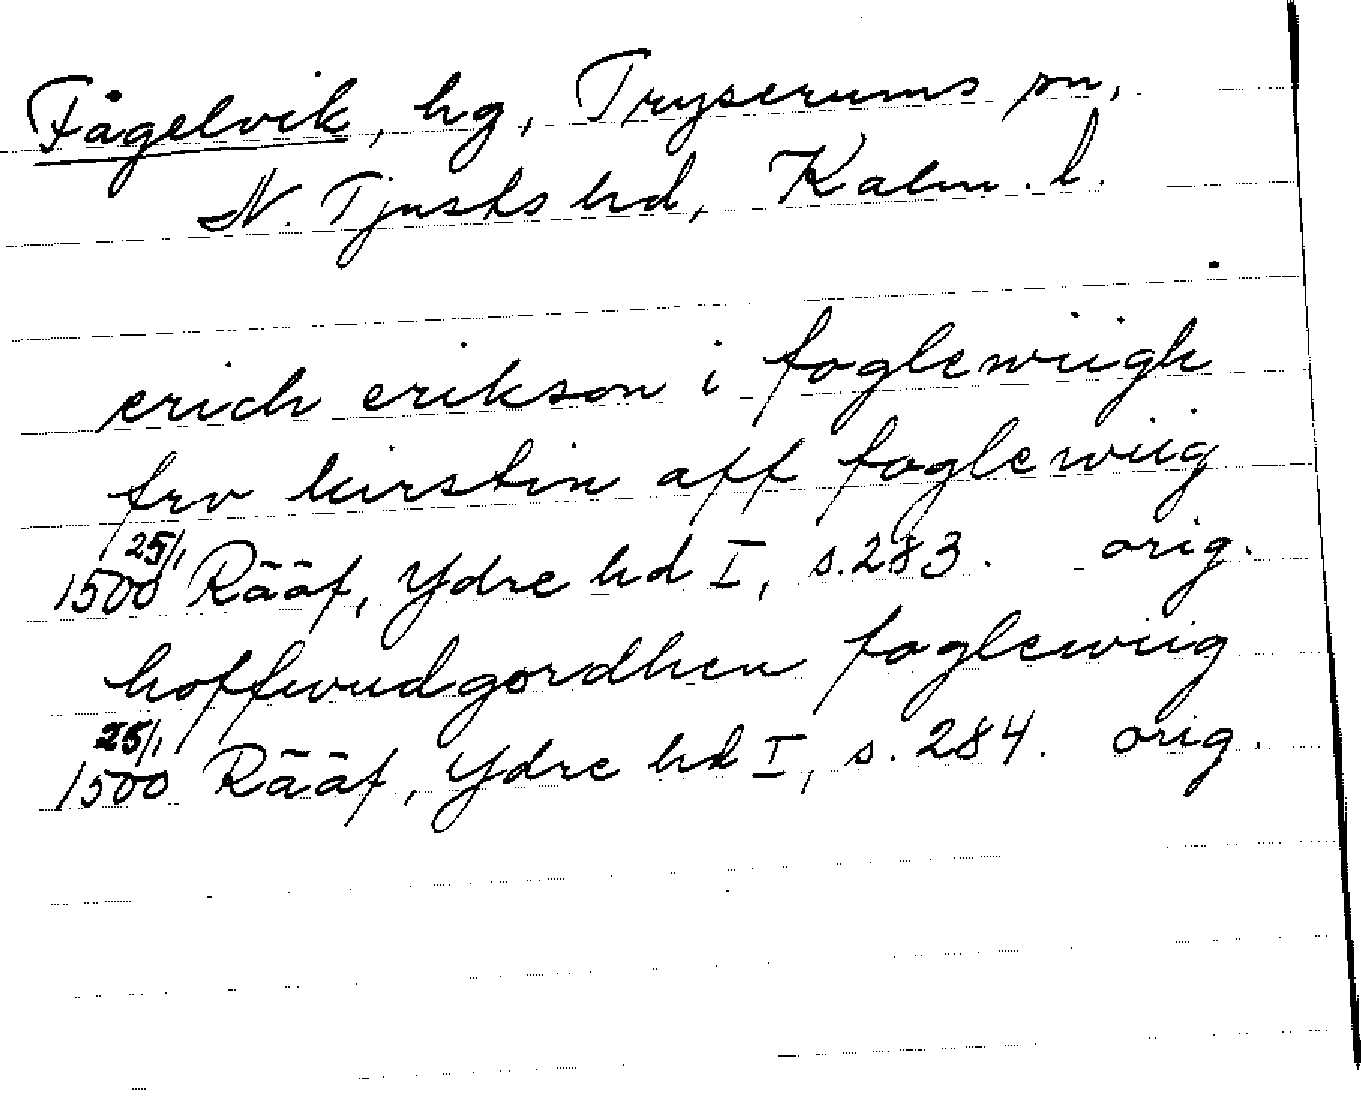 Fågelvik, hg, Tryserums sn,
N. Tjusts hd, Kalm. l.
erich erikson i foglewiigh
frv kirstin aff foglewiig
25/1 1500 Rääf, Ydre hd I, s. 283. orig.
hoffwudgordhen foglewiig
25/1 1500 Rääf, Ydre hd I, s. 284. orig.